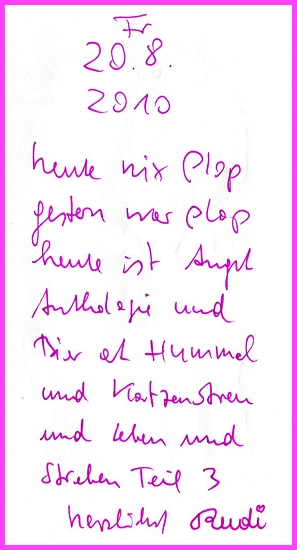 Fr
20.8.
2010
heute nix Plop
gestern war plop
heute ist Angst
Anthologie und
Bier at Hummel
und Katzenstreu
und leben und
streben Teil 3
herzlichst Rudi